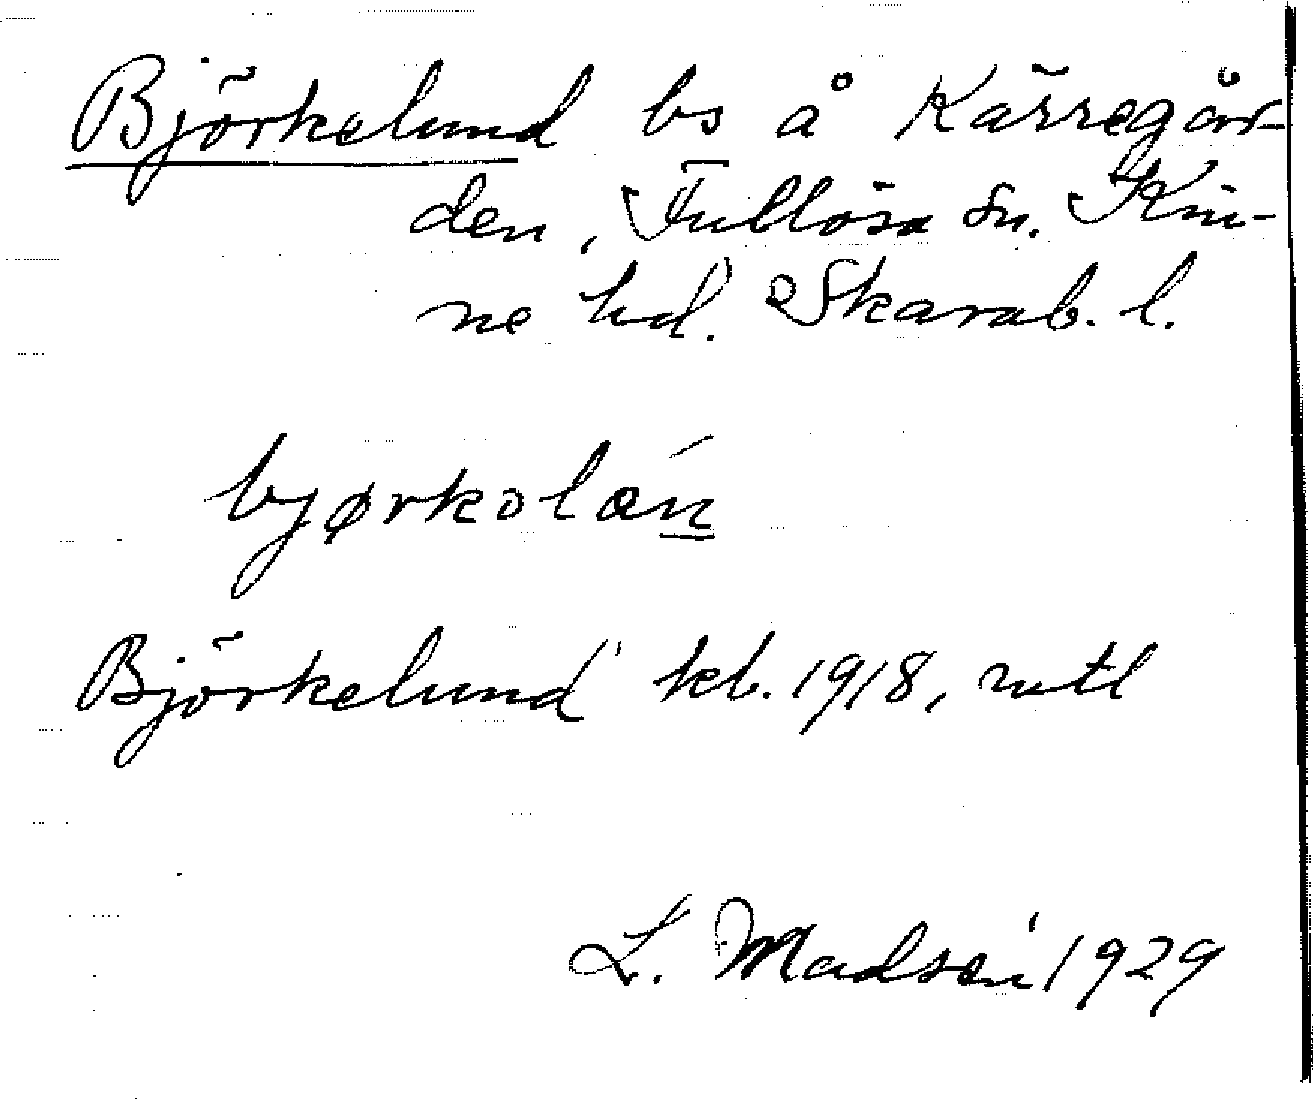 Björkelund bs å Kärregår-
den, Fullösa sn. Kin-
ne hd. Skarab. l.
bjørkolæń
Björkelund kb. 1918, mtl
L. Madsén 1929